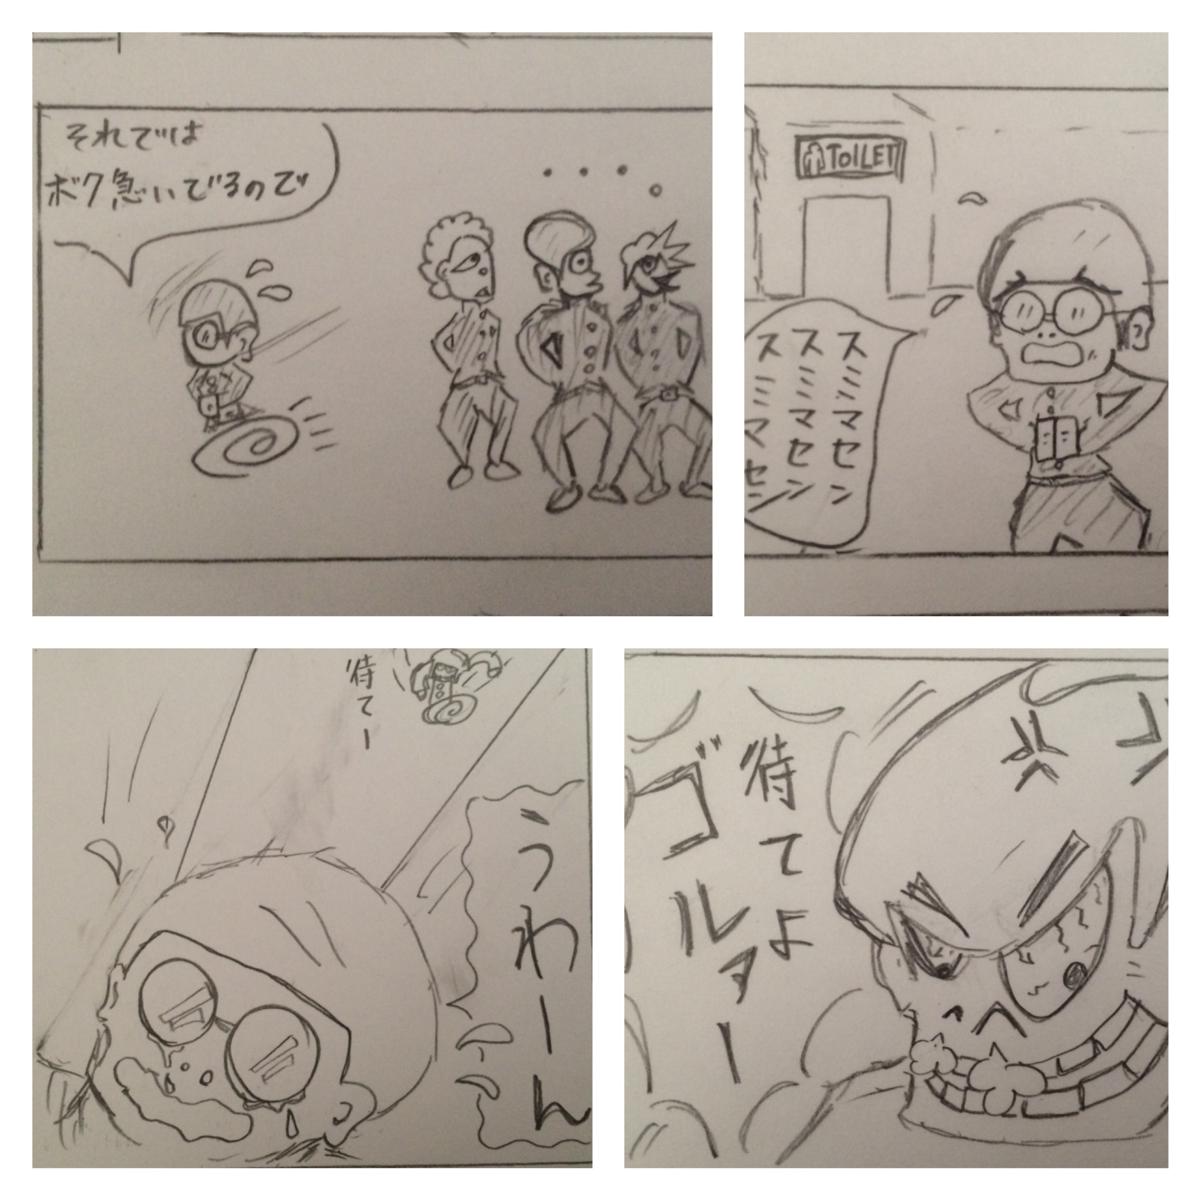 それでは
ボク急いでるので
・・・。
TOILET
スミマセン
スミマセン
スミマセン
待てー
うわーん
待てよ
ゴルァー